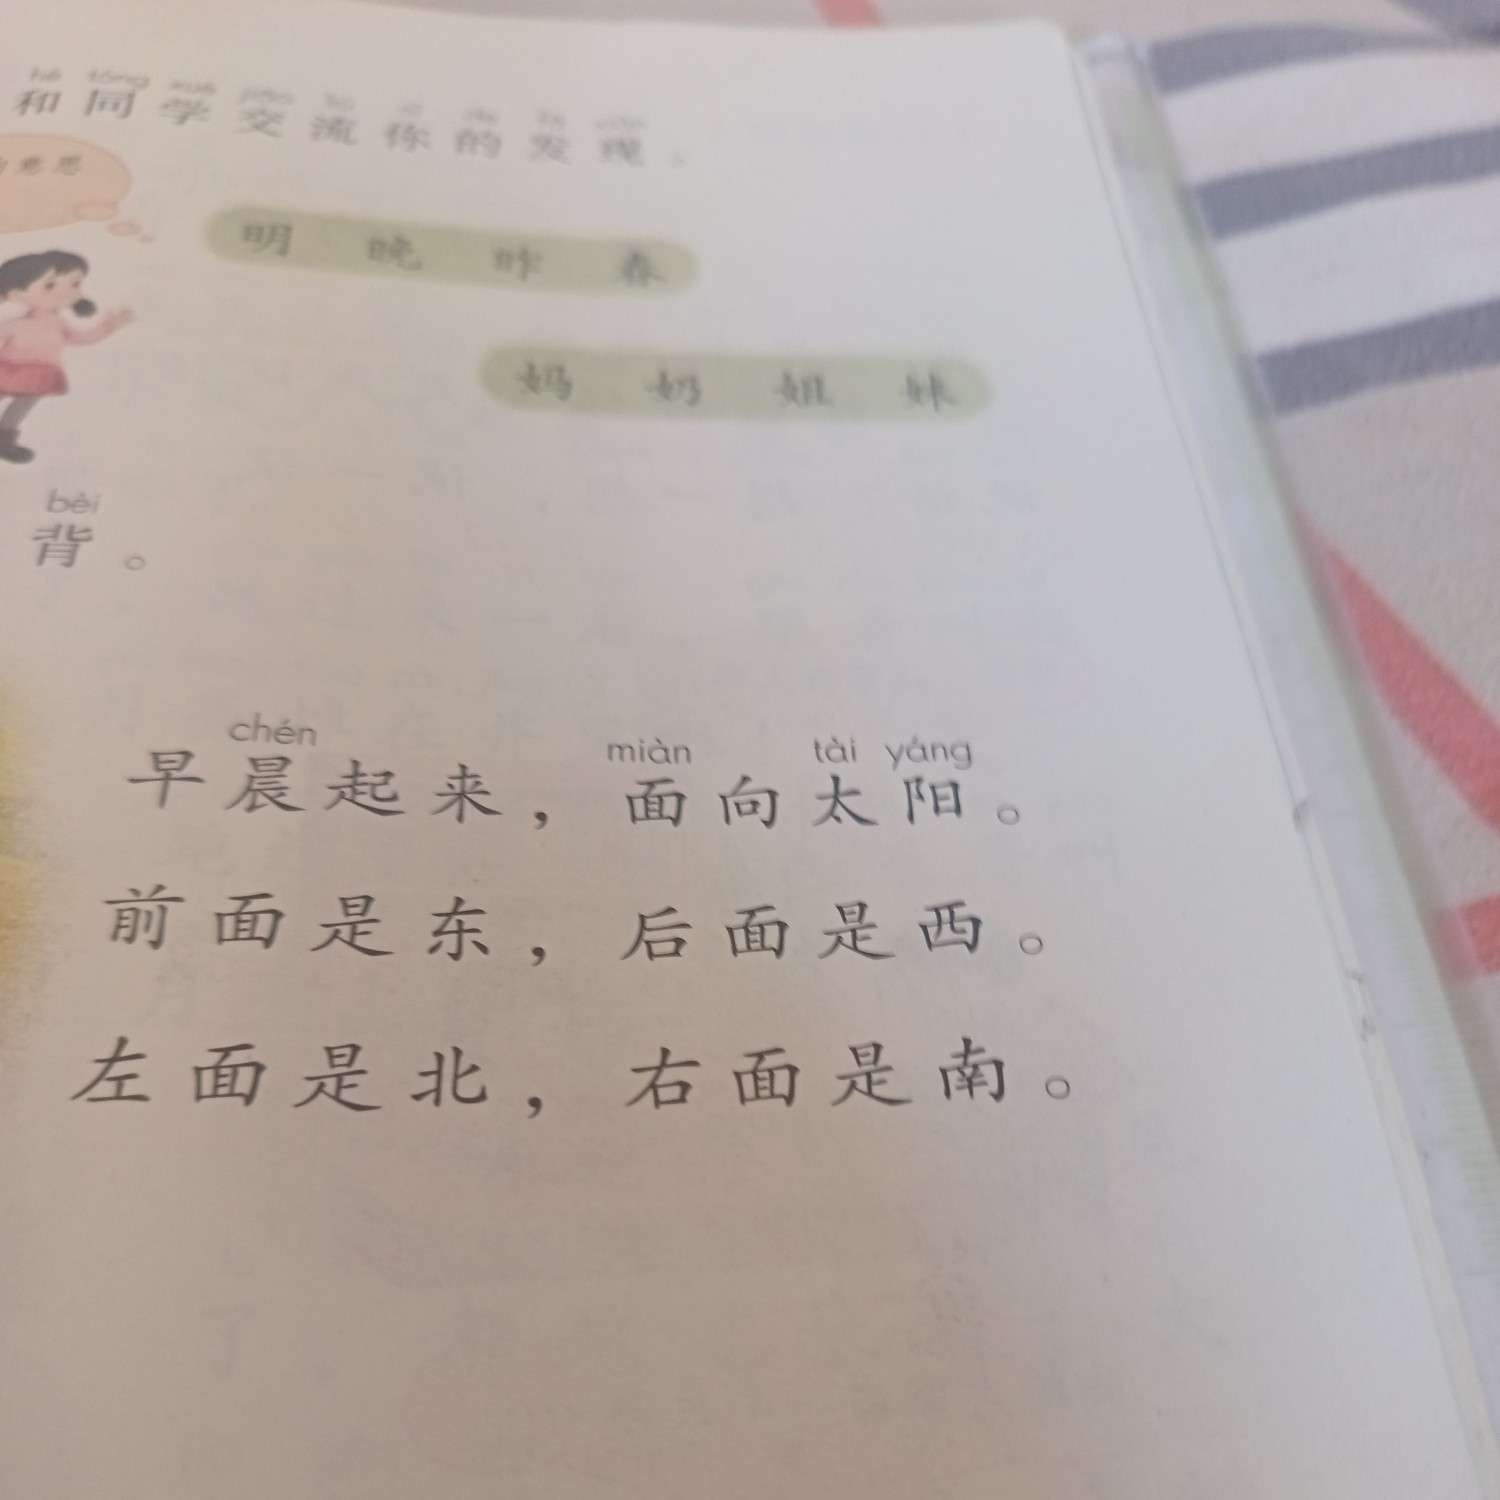 hé tóng xué jiāo liú nǐ de fā xiàn
和同学交流你的发现。
意思
明 晚 昨 春
妈 奶 姐 妹
bèi
背。
chén miàn tài yáng
早晨起来，面向太阳。
前面是东，后面是西。
左面是北，右面是南。